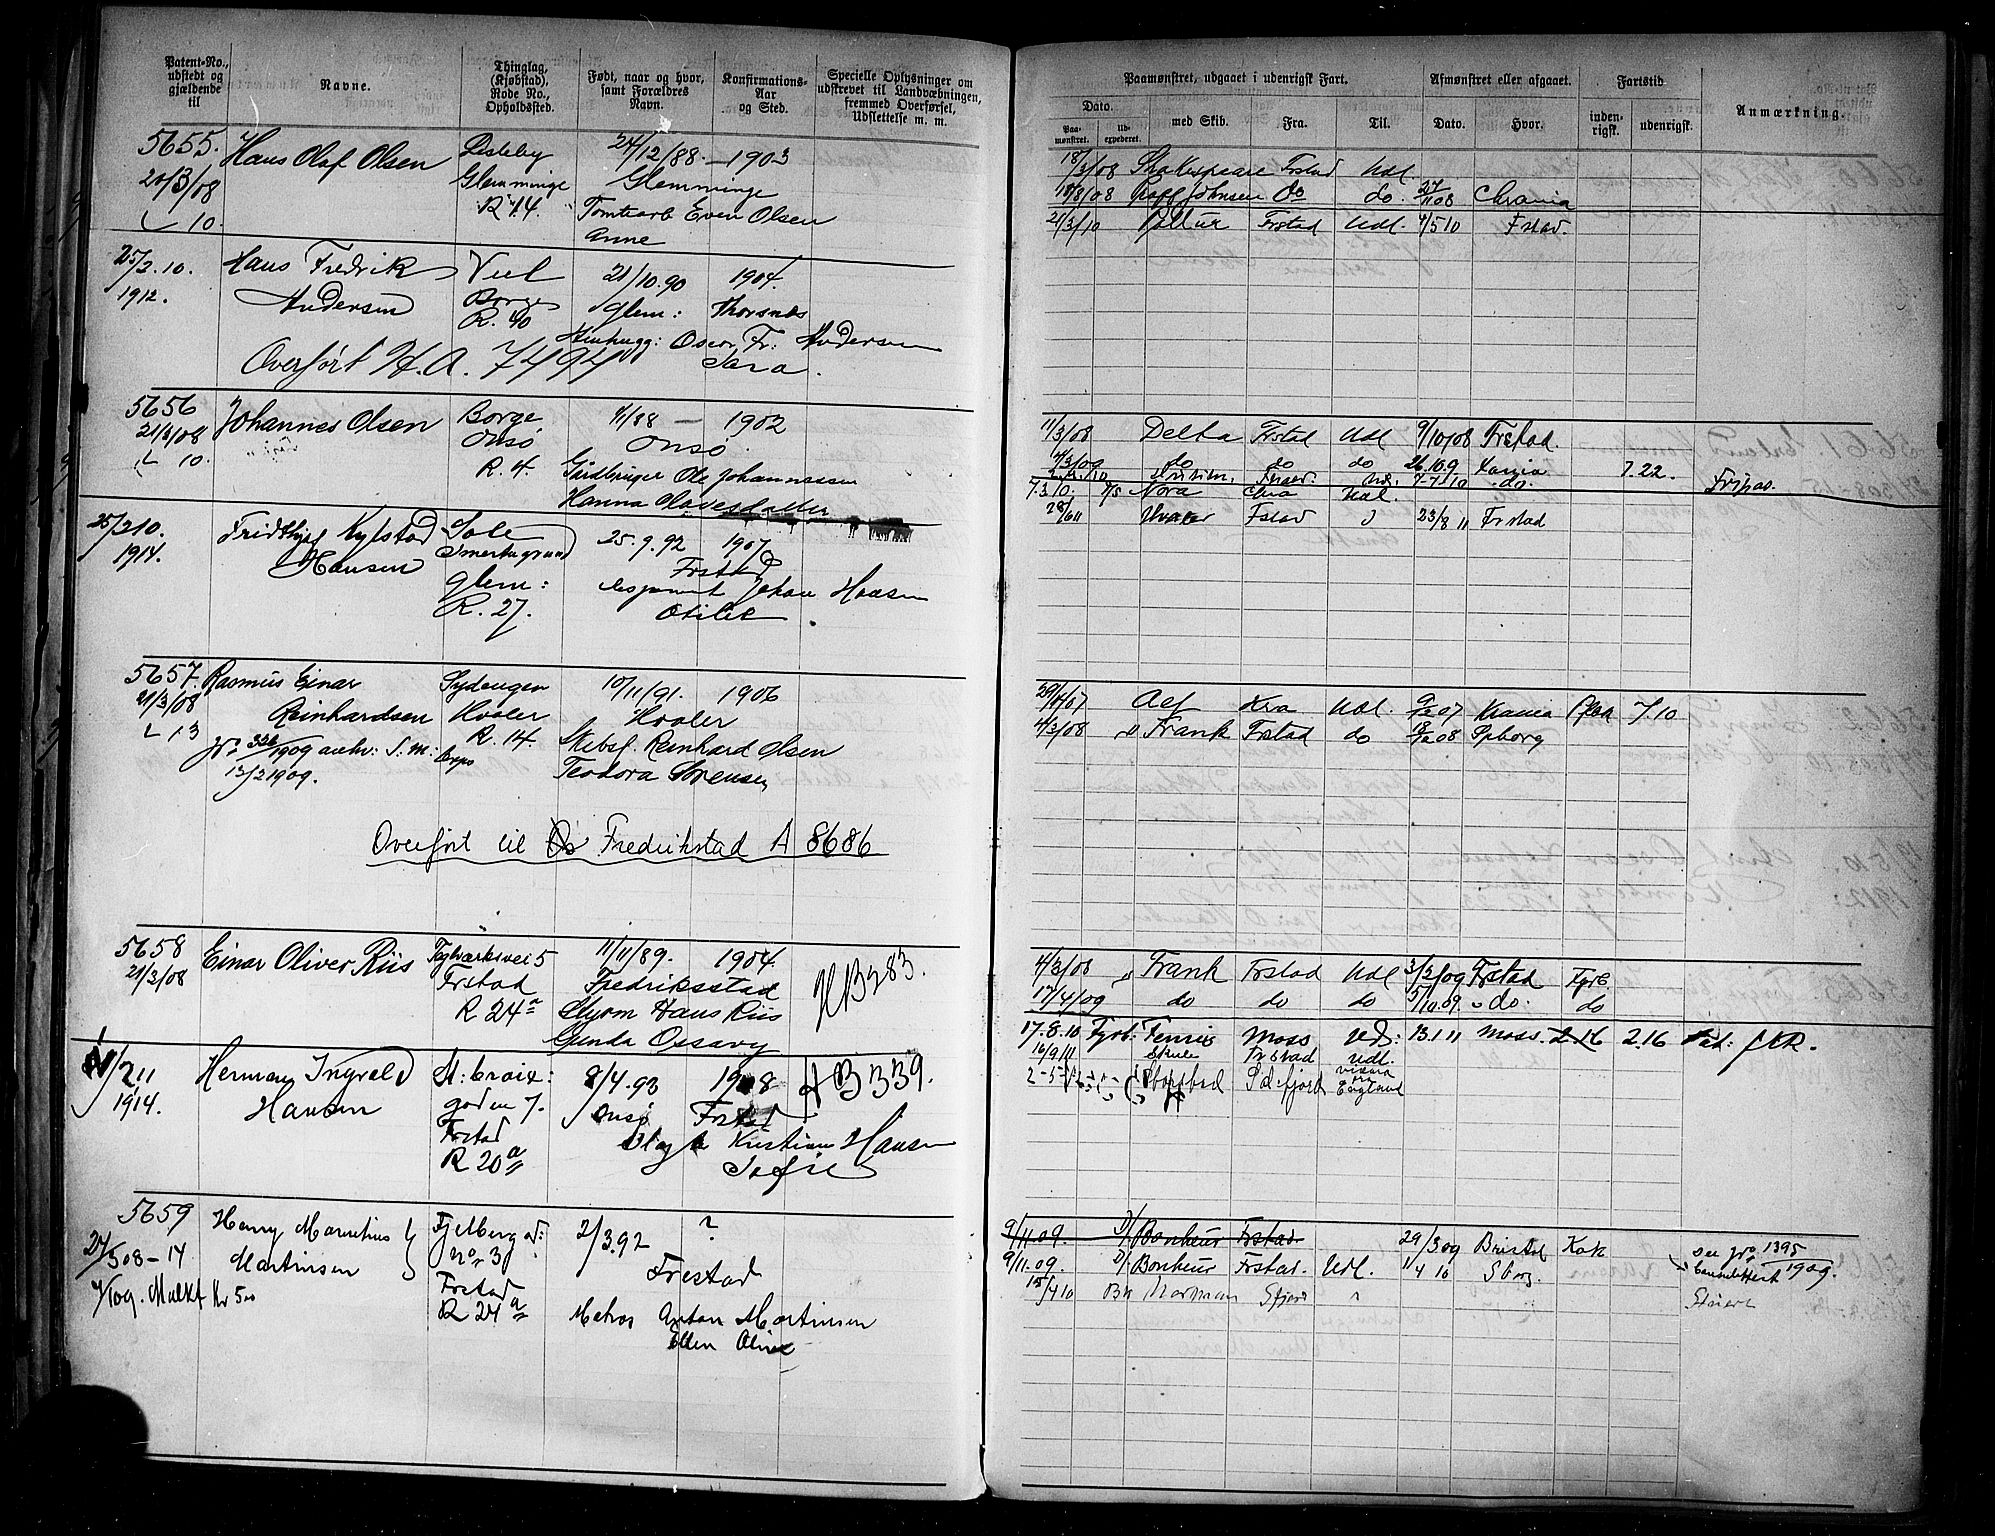 Patent-No., udstedt og gjældende til
Navne.
Thinglag, (Kjøbstad), Rode No., Opholdssted.
Født, naar og hvor, samt Forældres Navn.
Konfirmations-Aar og Sted.
Specielle Oplysninger om udskrevet til Landværnbningen, fremmed Overførsel, Udslettelse m. m.
Paamønstret, udgaaet i udenrigsk Fart.
Afmønstret eller afgaaet.
Fartstid
Anmærkning.
Dato.
Paa-mønstret.
Ud-expederet.
med Skib.
Fra.
Til.
Dato.
Hvor.
inden-rigsk.
udenrigsk.
5655. Hans Olaf Olsen Lisleby 24/12/88. 1903
20/3/08 Glemminge Glemminge
10. R 14. Tomtearb Even Olsen
Anne
18/3/08 Shakespeare Frstad Udl.
do. 27/11 08 Chrania
21/3/10 Pollux Frstad Udl. 4/5 10 Fstad
25/2.10. Hans Fredrik 21/10.90 1904.
1912. Andersen Borge Glem: Thorsnes
R. 40 Stenhugg: Oscar Fr. Andersen
Overført H.A. 7494 Sara.
5656 Johannes Olsen Borge 4/1/88 — 1902
21/3/08 Onsø Onsø
10. R. 4. Gaardbruger Ole Johannessen
Hanna Olavesdatter
11/3/08 Delta Frstad Udl 9/10/08 Frstad.
4/3/09 do do do 26.10.9. Kania 7.22.
Nora Chra Udl. do.
28/6 11 Fstad 23/8 11 Frstad
25/2 10. Fridthjof Kylstad 25.9.92 1907
1914. Hansen Frstad
Glem: Johan Hansen
R. 27. Otilie
5657. Rasmus Einar Sydengen 10/11/91. 1906
21/3/08 Reinhardsen Hvaler Hvaler
13 R. 14. Skibsf. Reinhard Olsen
1909 ankr: S. M: Corps Teodora Sørensen
13/2 1909.
Overført til Fredrikstad A 8686
29/4/07 Alf Kra Udl. 07 Krania 7.10
4/3/08 Frank Frstad do 08 Spborg
5658 Einar Oliver Riis Teglverksvei 5 11/11/89. 1904.
21/3/08 Frstad Fredriksstad
R 24a Styrm Hans Riis
Gunda Ossavy
4/3/08 Frank Frstad Udl 3/2/09 Frstad Fyrb.
17/4/09 do do do 5/10.09. do. do
17.8.10 Fyrb: Fenris Moss Udl: 13.1.11 Moss 2.16 2.16
16/9/11 Skule Frstad Udl.
England
1/2 11 Herman Ingvald St: Croix: 8/4.93 1908 A B 339.
1914. Hansen gaden 7. Onsø Frstad
Frstad Kristian Hansen
R 20a Sofie
5659 Harry Marentius Fjelberg ad: 2/3.92 ?
24/3 08 – 14 Martinsen no 3 Frestad
4/1 09. Mulkt Kr 5 Frstad
R 24a Matros Anton Martinsen
Ellen Oline
9/11.09. D/. Bonheur Frstad 29/3 09 Bristol Kok see jr. 1395
9/11.09. D/. Bonheur Frstad. Udl. 1/4 10 Sborg. 1909.
15/4 10 Bk Norman Sfjord " Stuert